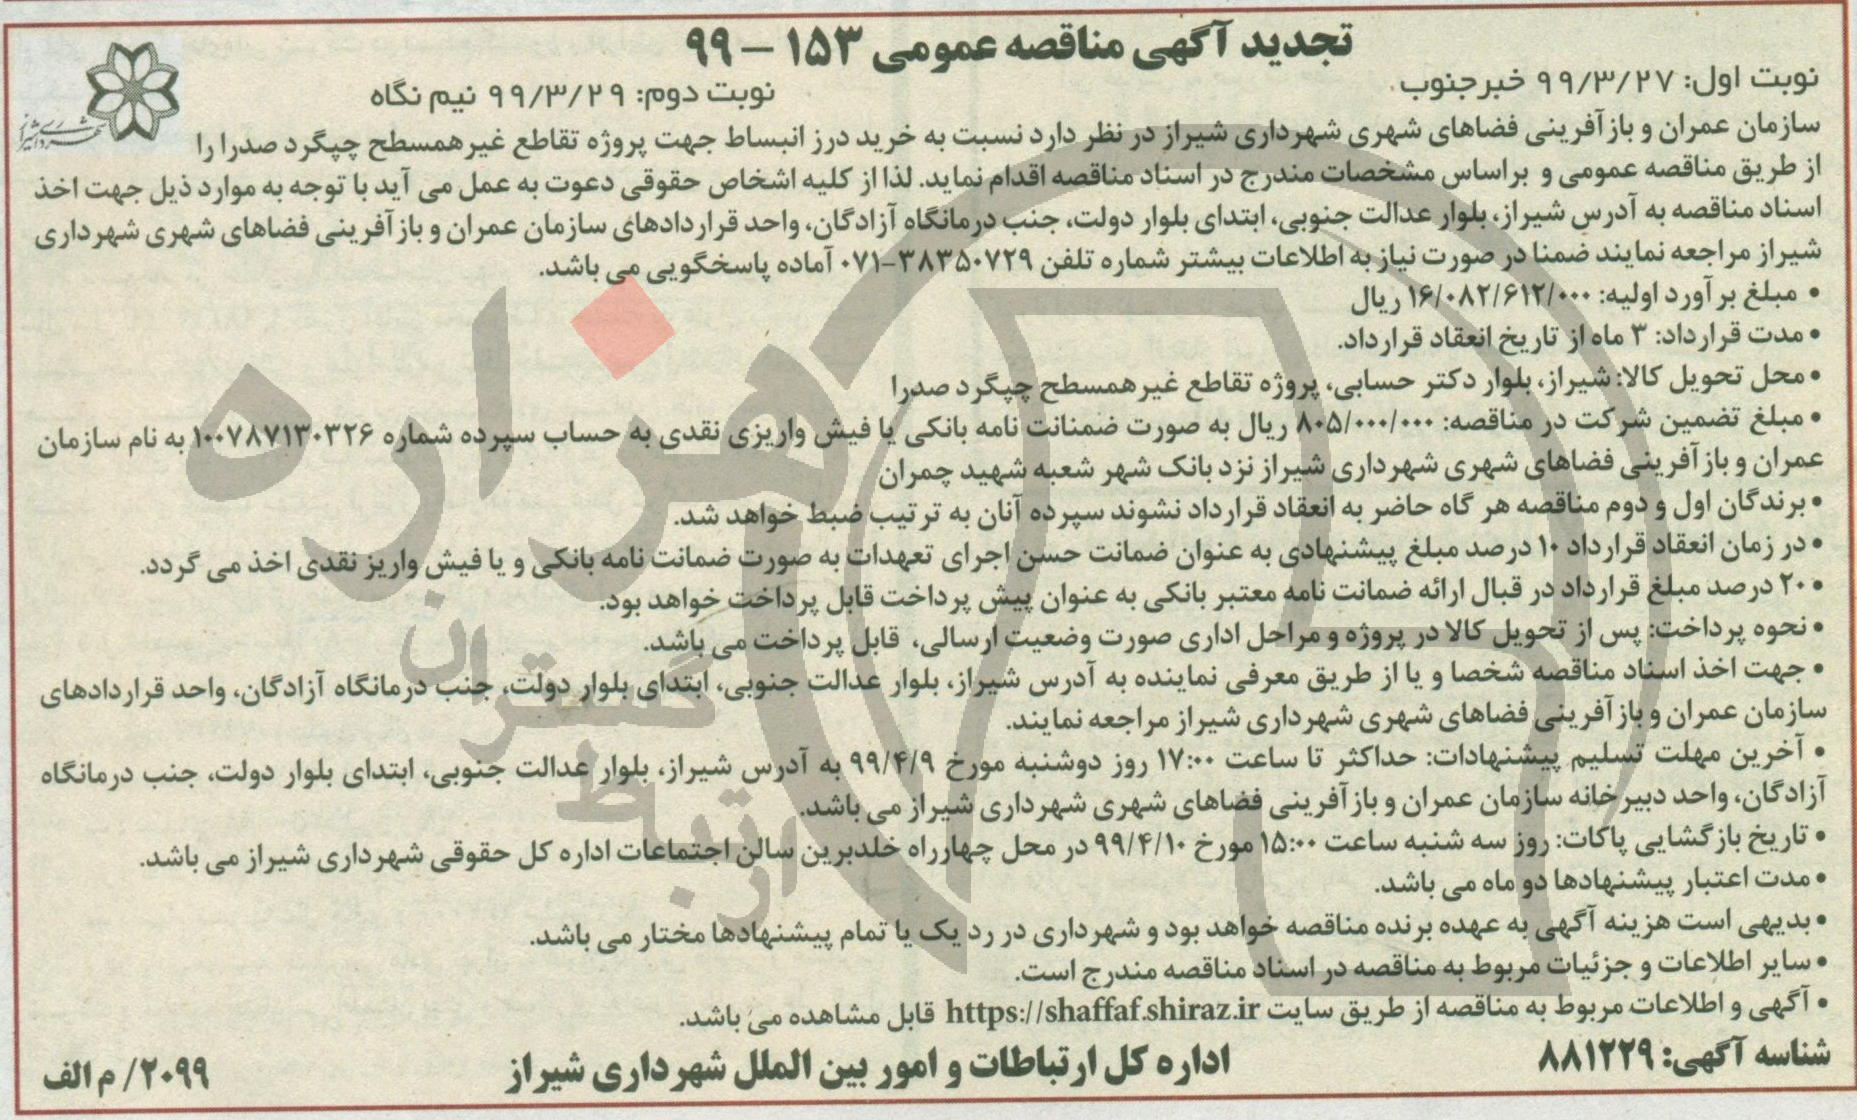 تجدید آگهی مناقصه عمومی ۱۵۳ – ۹۹
نوبت اول: ۹۹/۳/۲۷ خبرجنوب
نوبت دوم: ۹۹/۳/۲۹ نیم نگاه
شهرداری شیراز
سازمان عمران و بازآفرینی فضاهای شهری شهرداری شیراز در نظر دارد نسبت به خرید درز انبساط جهت پروژه تقاطع غیرهمسطح چپگرد صدرا را
از طریق مناقصه عمومی و براساس مشخصات مندرج در اسناد مناقصه اقدام نماید. لذا از کلیه اشخاص حقوقی دعوت به عمل می آید با توجه به موارد ذیل جهت اخذ
اسناد مناقصه به آدرس شیراز، بلوار عدالت جنوبی، ابتدای بلوار دولت، جنب درمانگاه آزادگان، واحد قراردادهای سازمان عمران و بازآفرینی فضاهای شهری شهرداری
شیراز مراجعه نمایند ضمنا در صورت نیاز به اطلاعات بیشتر شماره تلفن ۳۸۳۵۰۷۲۹-۰۷۱ آماده پاسخگویی می باشد.
• مبلغ برآورد اولیه: ۱۶/۰۸۲/۶۱۲/۰۰۰ ریال
• مدت قرارداد: ۳ ماه از تاریخ انعقاد قرارداد.
• محل تحویل کالا: شیراز، بلوار دکتر حسابی، پروژه تقاطع غیرهمسطح چپگرد صدرا
• مبلغ تضمین شرکت در مناقصه: ۸۰۵/۰۰۰/۰۰۰ ریال به صورت ضمنانت نامه بانکی یا فیش واریزی نقدی به حساب سپرده شماره ۱۰۰۷۸۷۱۳۰۳۲۶ به نام سازمان
عمران و بازآفرینی فضاهای شهری شهرداری شیراز نزد بانک شهر شعبه شهید چمران
• برندگان اول و دوم مناقصه هر گاه حاضر به انعقاد قرارداد نشوند سپرده آنان به ترتیب ضبط خواهد شد.
• در زمان انعقاد قرارداد ۱۰ درصد مبلغ پیشنهادی به عنوان ضمانت حسن اجرای تعهدات به صورت ضمانت نامه بانکی و یا فیش واریز نقدی اخذ می گردد.
• ۲۰ درصد مبلغ قرارداد در قبال ارائه ضمانت نامه معتبر بانکی به عنوان پیش پرداخت قابل پرداخت خواهد بود.
• نحوه پرداخت: پس از تحویل کالا در پروژه و مراحل اداری صورت وضعیت ارسالی، قابل پرداخت می باشد.
• جهت اخذ اسناد مناقصه شخصا و یا از طریق معرفی نماینده به آدرس شیراز، بلوار عدالت جنوبی، ابتدای بلوار دولت، جنب درمانگاه آزادگان، واحد قراردادهای
سازمان عمران و بازآفرینی فضاهای شهری شهرداری شیراز مراجعه نمایند.
• آخرین مهلت تسلیم پیشنهادات: حداکثر تا ساعت ۱۷:۰۰ روز دوشنبه مورخ ۹۹/۴/۹ به آدرس شیراز، بلوار عدالت جنوبی، ابتدای بلوار دولت، جنب درمانگاه
آزادگان، واحد دبیرخانه سازمان عمران و بازآفرینی فضاهای شهری شهرداری شیراز می باشد.
• تاریخ بازگشایی پاکات: روز سه شنبه ساعت ۱۵:۰۰ مورخ ۹۹/۴/۱۰ در محل چهارراه خلدبرین سالن اجتماعات اداره کل حقوقی شهرداری شیراز می باشد.
• مدت اعتبار پیشنهادها دو ماه می باشد.
• بدیهی است هزینه آگهی به عهده برنده مناقصه خواهد بود و شهرداری در رد یک یا تمام پیشنهادها مختار می باشد.
• سایر اطلاعات و جزئیات مربوط به مناقصه در اسناد مناقصه مندرج است.
• آگهی و اطلاعات مربوط به مناقصه از طریق سایت https://shaffaf.shiraz.ir قابل مشاهده می باشد.
شناسه آگهی: ۸۸۱۲۲۹
اداره کل ارتباطات و امور بین الملل شهرداری شیراز
۲۰۹۹/ م الف
هزاره
ارتباط گستران